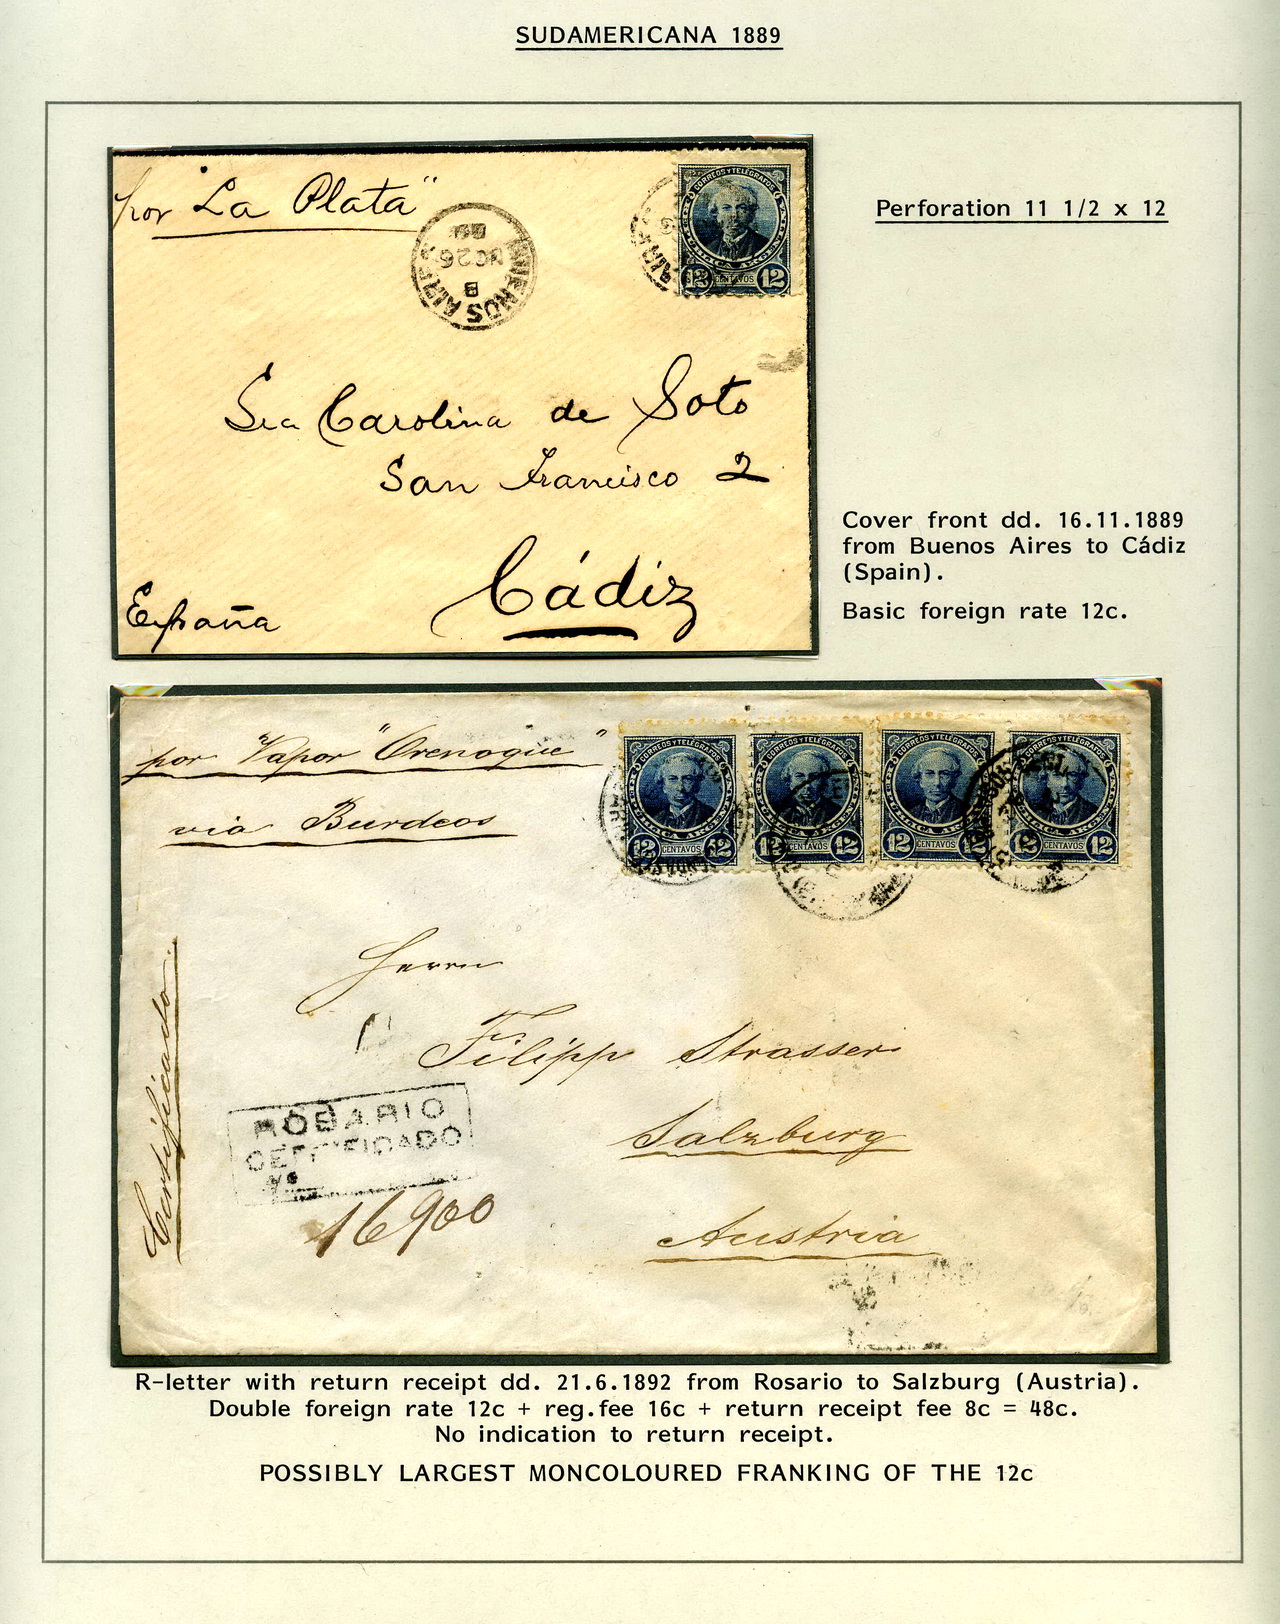 SUDAMERICANA 1889
por "La Plata"
BUENOS AIRES
26
B
CORREOS Y TELEGRAFOS
12 CENTAVOS 12
Perforation 11 1/2 x 12
Sra Carolina de Soto
San Francisco 2
Cádiz
España
Cover front dd. 16.11.1889
from Buenos Aires to Cádiz
(Spain).
Basic foreign rate 12c.
por "Vapor "Orenoque"
via Burdeos
CORREOS Y TELEGRAFOS
12 CENTAVOS 12
CORREOS Y TELEGRAFOS
12 CENTAVOS 12
CORREOS Y TELEGRAFOS
12 CENTAVOS 12
CORREOS Y TELEGRAFOS
12 CENTAVOS 12
Herrn
Filipp Strasser
Salzburg
Austria
Certificado
ROSARIO
CERTIFICADO
No
16900
R-letter with return receipt dd. 21.6.1892 from Rosario to Salzburg (Austria).
Double foreign rate 12c + reg.fee 16c + return receipt fee 8c = 48c.
No indication to return receipt.
POSSIBLY LARGEST MONCOLOURED FRANKING OF THE 12c